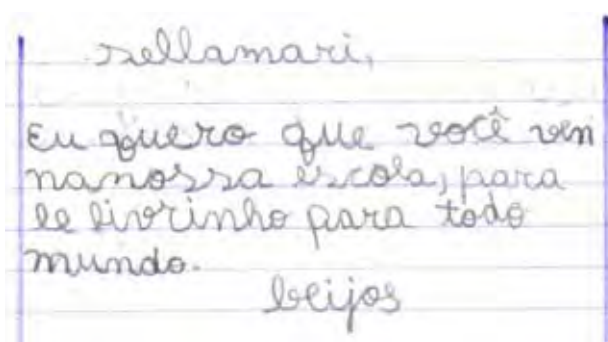 sellamari,
Eu quero que você ven
nanossa escola, para
le livrinho para todo
mundo.
beijos